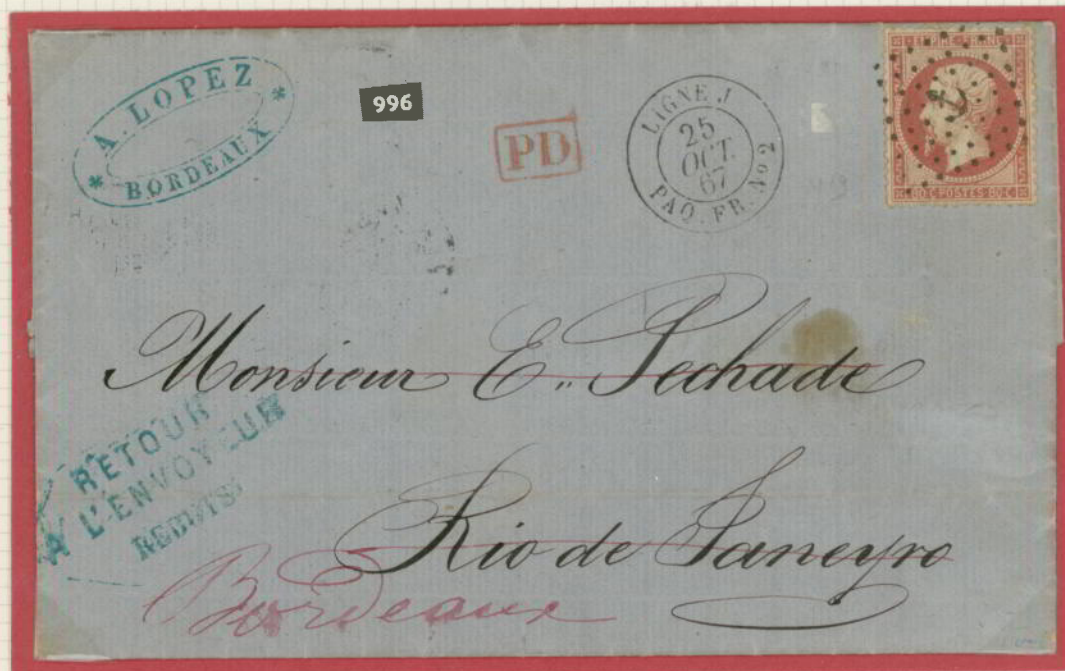 * A. LOPEZ *
BORDEAUX
996
PD
LIGNE J
25
OCT.
67
PAQ. FR. No 2
EMPIRE FRANC
80·C·POSTES·80·C
Monsieur E. Pechade
RETOUR
A L'ENVOYEUR
Rio de Janeyro
Bordeaux